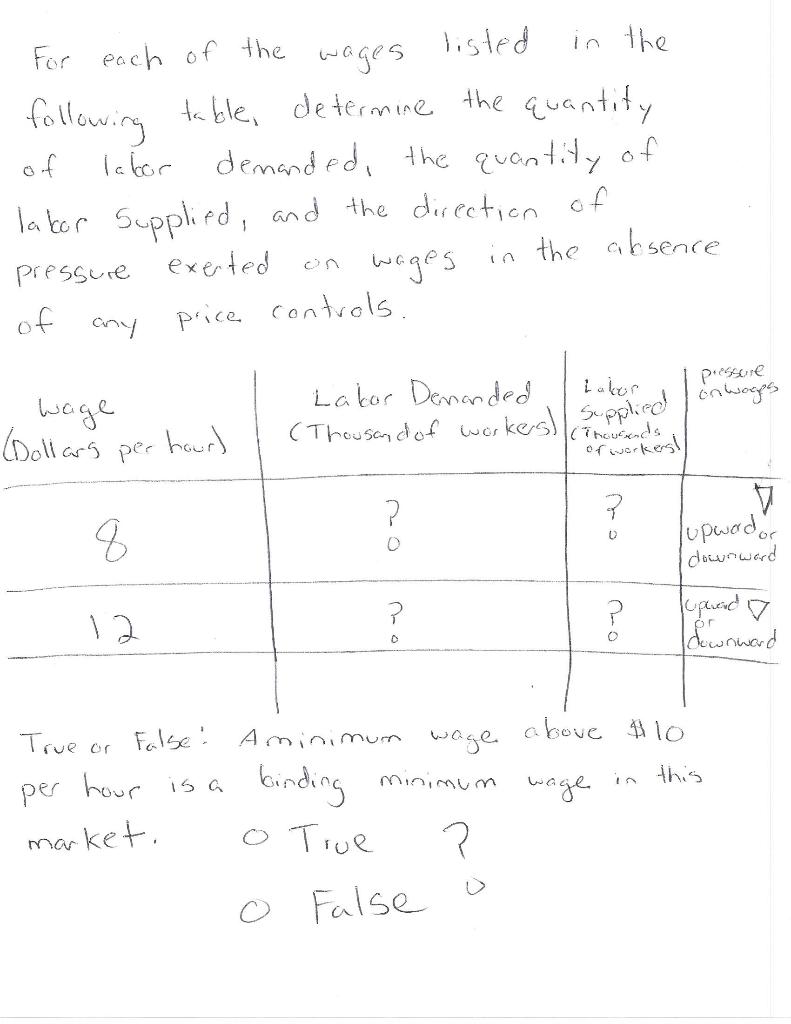 For each of the wages listed in the
following table, determine the quantity
of labor demanded, the quantity of
labor Supplied, and the direction of
pressure exerted on wages in the absence
of any price controls.
wage
(Dollars per hour)
Labor Demanded
(Thousand of workers)
Labor
Supplied
(Thousands
of workers)
pressure
on wages
8
?
?
upwad or
downward
12
?
?
upward
or
downward
True or False: A minimum wage above $10
per hour is a binding minimum wage in this
market. O True ?
O False